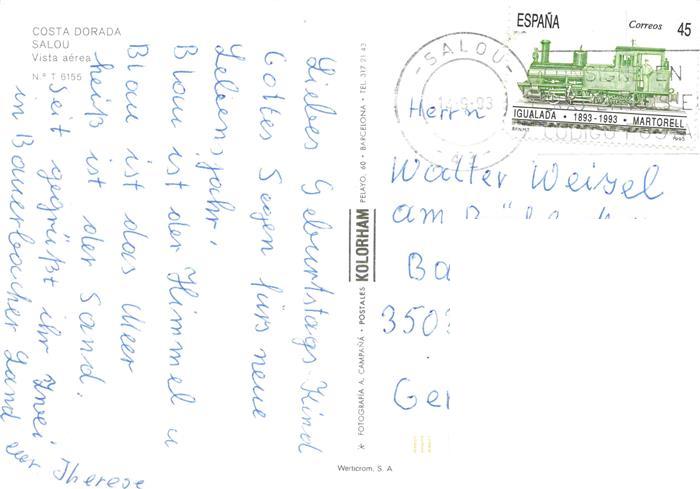 COSTA DORADA
SALOU
Vista aérea
N.º T 6155
Liebes Geburtstags-Kind
Gottes Segen fürs neue
Lebensjahr.
Blau ist der Himmel u
Blau ist das Meer
heiß ist der Sand.
Seit gegrüßt ihr Zwei
in Bauerbacher Land
Therese
FOTOGRAFIA A. CAMPAÑÁ • POSTALES KOLORHAM PELAYO, 60 • BARCELONA • TEL. 317 21 43
Werticrom, S. A.
ESPAÑA
Correos 45
IGUALADA • 1893-1993 • MARTORELL
SALOU
Herrn
Walter Weizel
am
Ba
350
Ger